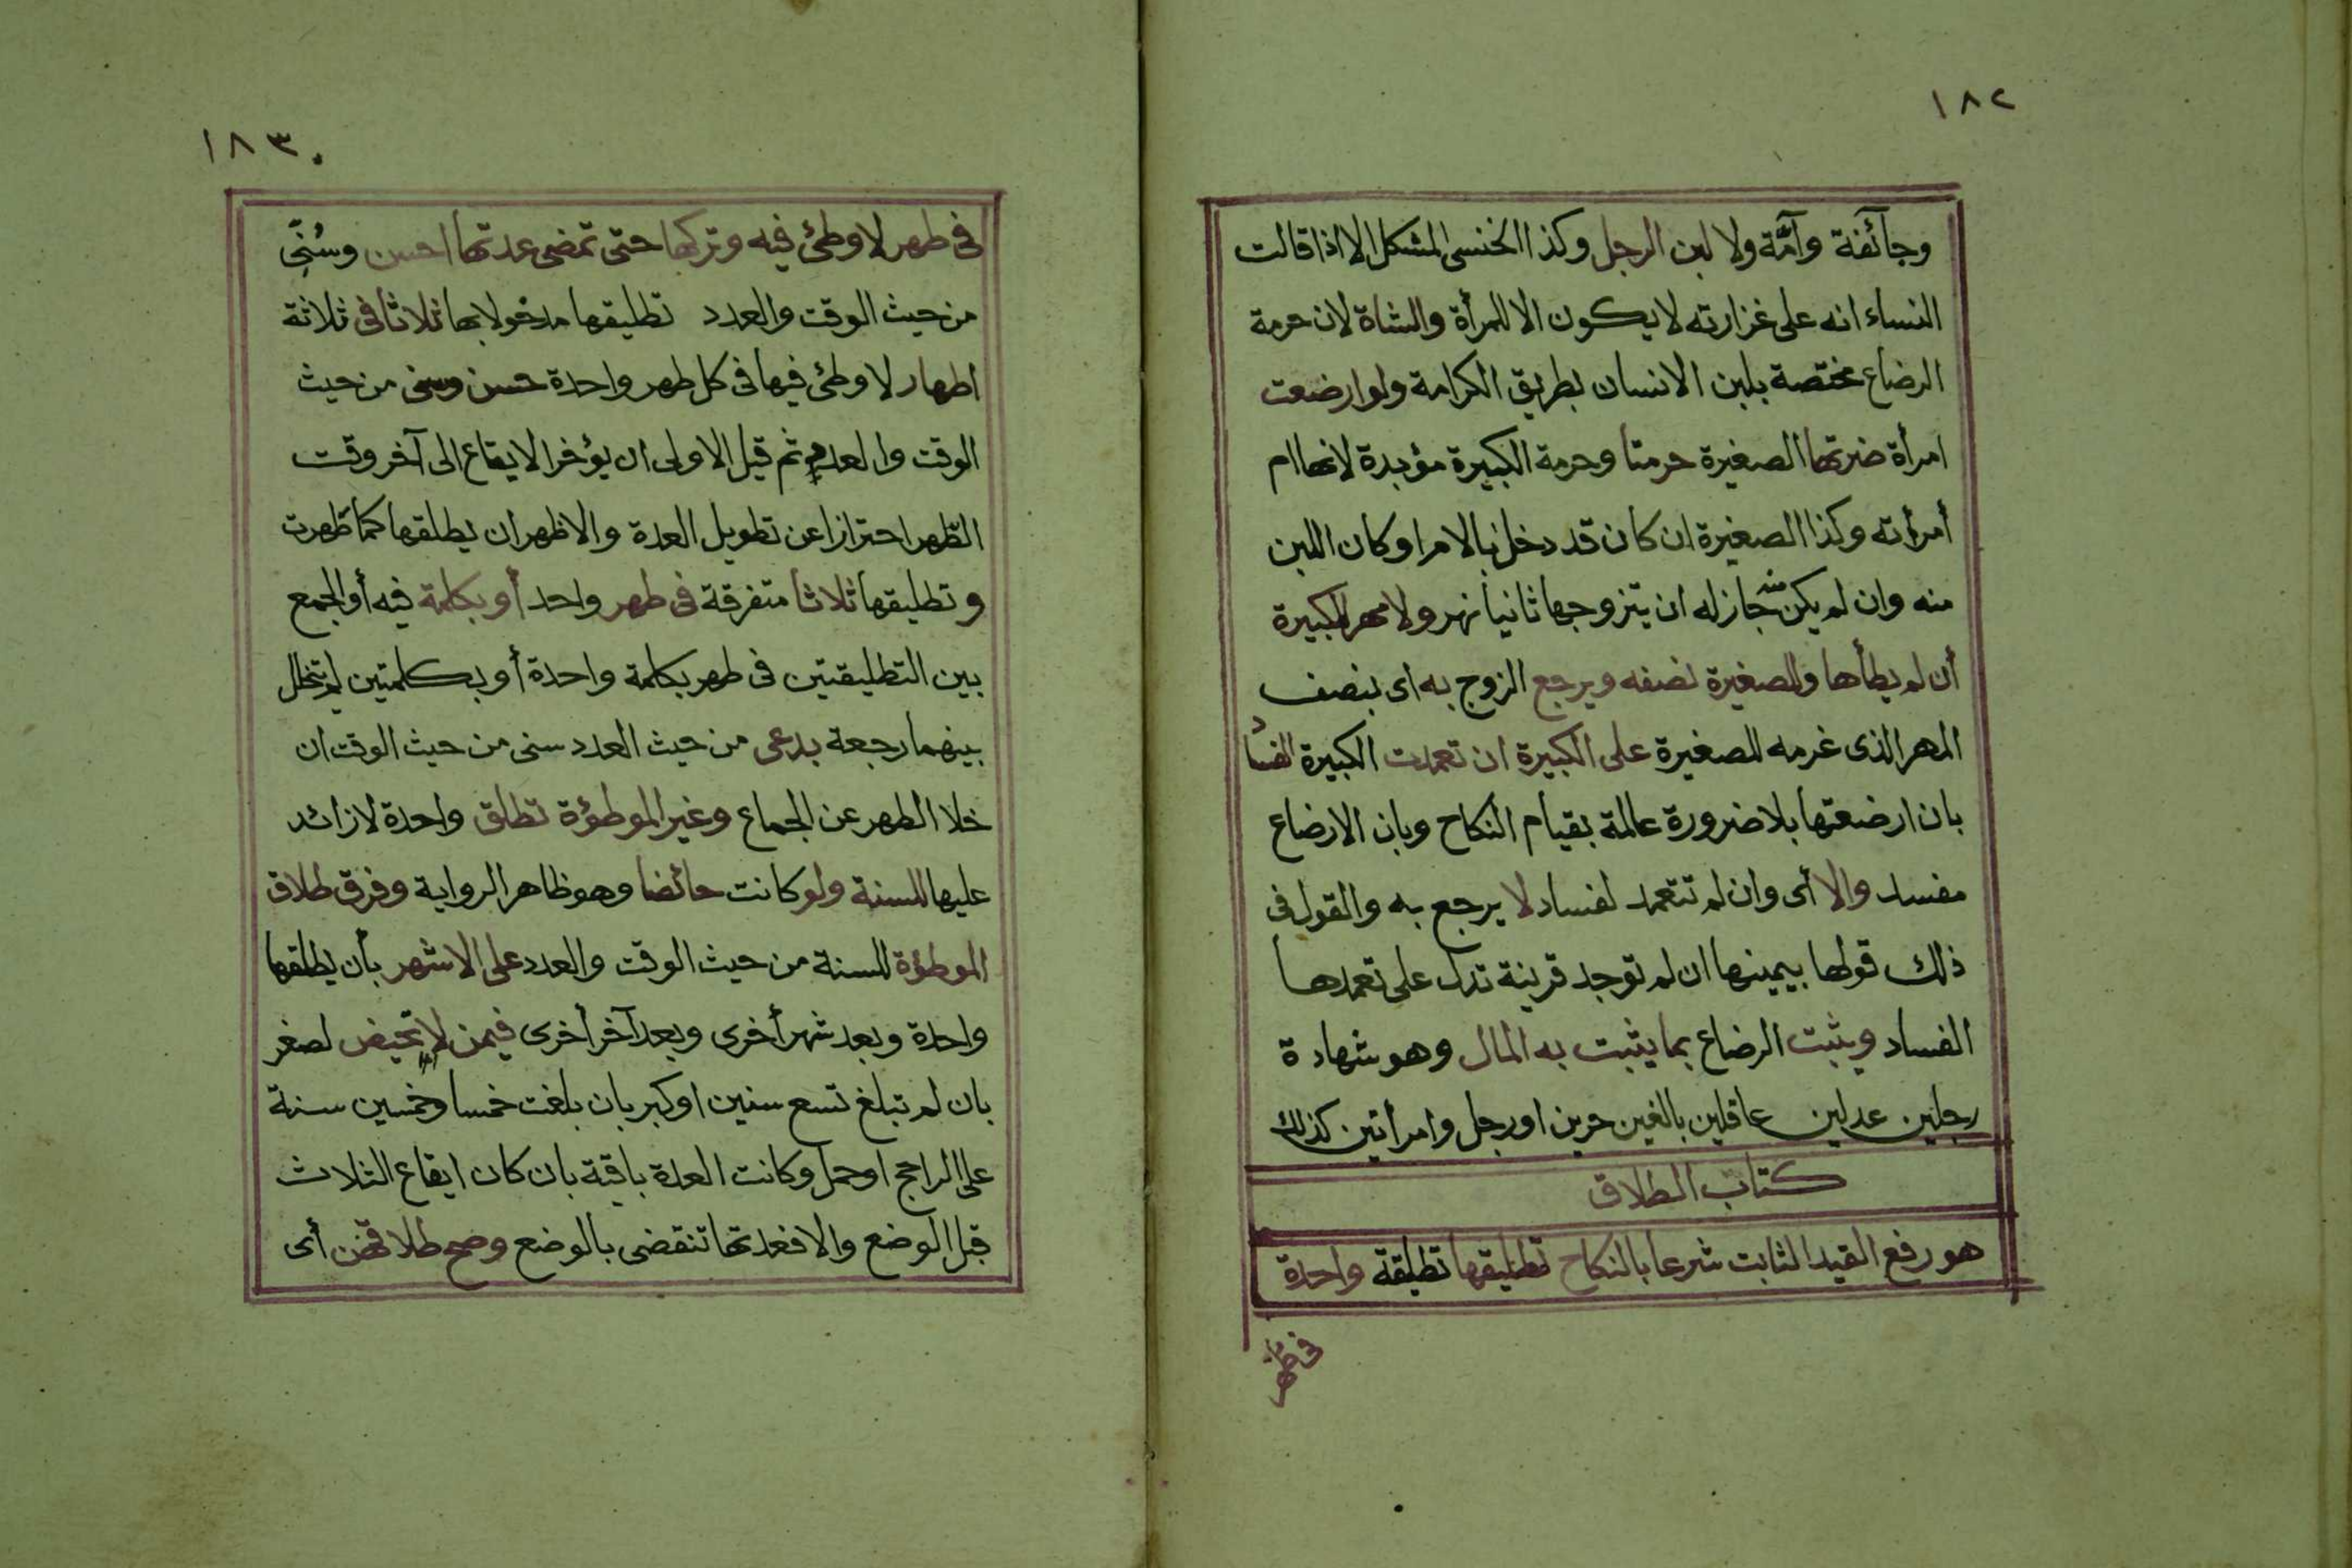 ١٨٢
وجآئفة وآمّة ولا لبن الرجل وكذا الخنسى المشكل الا اذا قالت
النساء انه على غزارته لا يكون الا للمرأة والشاة لان حرمة
الرضاع مختصة بلبن الانسان بطريق الكرامة ولو ارضعت
امرأة ضرتها الصغيرة حرمتا وحرمة الكبيرة مؤبدة لانها ام
أمرأته وكذا الصغيرة ان كان قد دخل بالام او كان اللبن
منه وان لم يكن منه جاز له ان يتزوجها ثانيا ولا مهر للكبيرة
أن لم يطأها وللصغيرة نصفه ويرجع الزوج به اى بنصف
المهر الذى غرمه للصغيرة على الكبيرة ان تعمدت الكبيرة الفساد
بان ارضعتها بلا ضرورة عالمة بقيام النكاح وبان الارضاع
مفسد والا أى وان لم تتعمد لفساد لا يرجع به والقول فى
ذلك قولها بيمينها ان لم توجد قرينة تدل على تعمدها
الفساد ويثبت الرضاع بما يثبت به المال وهو شهادة
رجلين عدلين عاقلين بالغين حرين او رجل وامرأتين كذلك
كتاب الطلاق
هو رفع القيد الثابت شرعا بالنكاح تطليقها تطليقة واحدة
فى طهر
١٨٣
فى طهر لا وطئ فيه وتركها حتى تمضى عدتها احسن وسُنِّى
من حيث الوقت والعدد تطليقها مدخولا بها ثلاثا فى ثلاثة
اطهار لا وطئ فيها فى كل طهر واحدة حسن وسنى من حيث
الوقت والعدد ثم قيل الاولى ان يؤخر الايقاع الى آخر وقت
الطهر احترازا عن تطويل العدة والاظهر ان يطلقها كما طهرت
وتطليقها ثلاثا متفرقة فى طهر واحد أو بكلمة فيه أو الجمع
بين التطليقتين فى طهر بكلمة واحدة أو بكلمتين لم تتخلل
بينهما رجعة بدعى من حيث العدد سنى من حيث الوقت ان
خلا الطهر عن الجماع وغير الموطؤة تطلق واحدة لا زائد
عليها للسنة ولو كانت حائضا وهو ظاهر الرواية وفرق طلاق
الموطؤة للسنة من حيث الوقت والعدد على الاشهر بأن يطلقها
واحدة وبعد شهر أخرى وبعد آخر أخرى فيمن لا تحيض لصغر
بان لم تبلغ تسع سنين او كبر بان بلغت خمسا وخمسين سنة
على الراجح او حمل وكانت العدة باقية بان كان ايقاع الثلاث
قبل الوضع والا فعدتها تنقضى بالوضع وصح طلاقهن أى